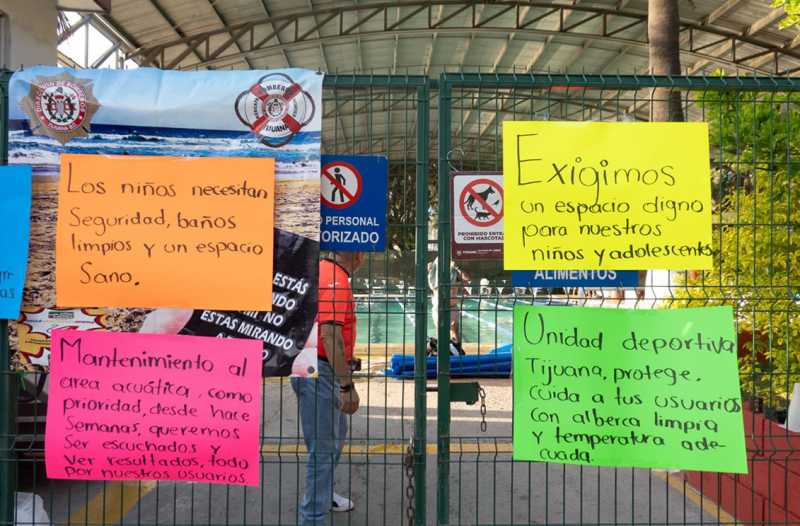 BOMBEROS
TIJUANA
Los niños necesitan
Seguridad, baños
limpios y un espacio
Sano.
Mantenimiento al
area acuática, como
prioridad, desde hace
Semanas, queremos
Ser escuchados y
Ver resultados, todo
por nuestros usuarios
ESTÁS
NO
ESTÁS MIRANDO
PERSONAL
PROHIBIDO
CON MASCOTAS
ALIMENTOS
Exigimos
un espacio digno
para nuestros
niños y adolescentes
Unidad deportiva
Tijuana, protege,
cuida a tus usuarios
con alberca limpia
y temperatura ade
cuada.